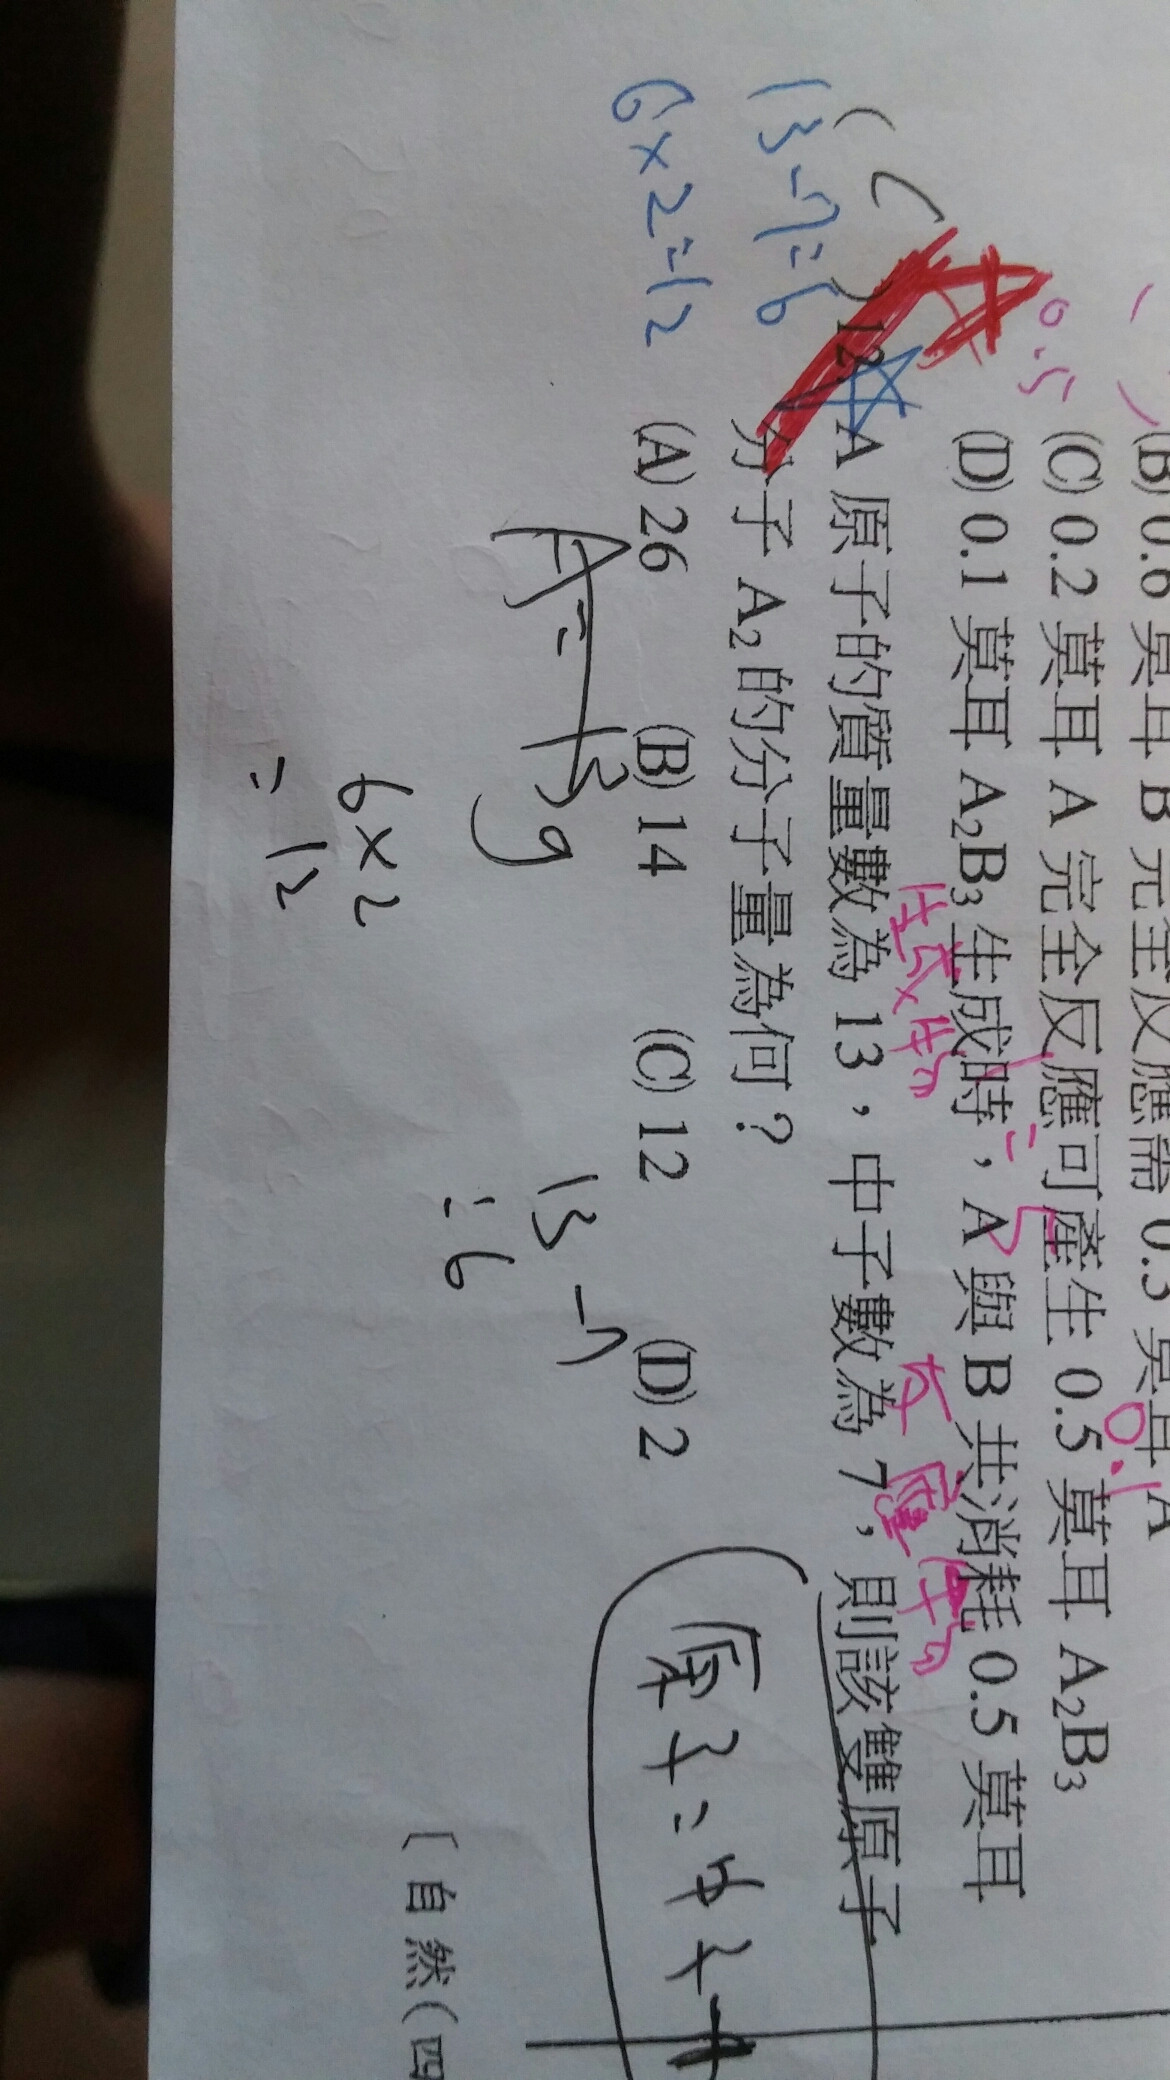 (B) 0.6 莫耳 B 完全反應需 0.3 莫耳 A
0.1
0.5
(C) 0.2 莫耳 A 完全反應可產生 0.5 莫耳 A₂B₃
(D) 0.1 莫耳 A₂B₃ 生成時，A 與 B 共消耗 0.5 莫耳
生成物
反應物
A
( C )12. A 原子的質量數為 13，中子數為 7，則該雙原子
分子 A₂ 的分子量為何？
13-7=6
6×2=12
(A) 26 (B) 14 (C) 12 (D) 2
A=13g
13-7
=6
6×2
=12
〔自然(四